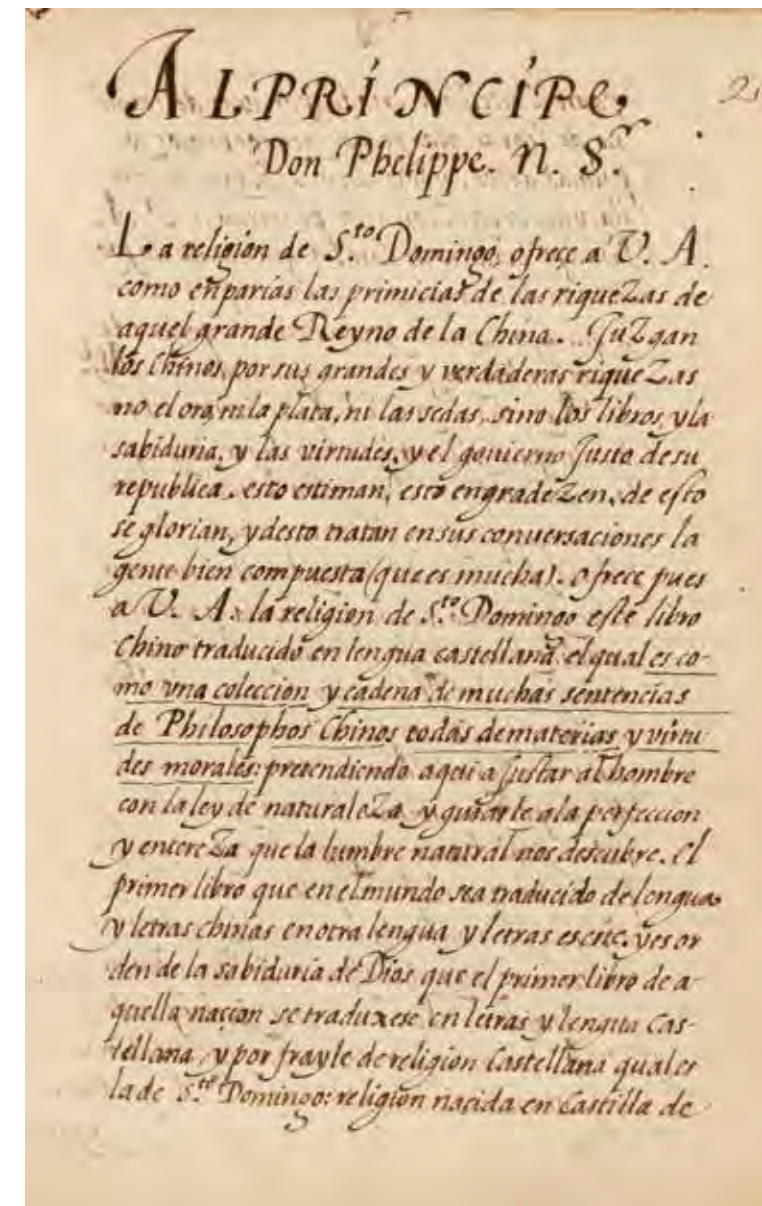 AL PRINCIPE
2
Don Phelippe. N. S.r
La religion de S.to Domingo, ofrece a V. A.
como en parias las primicias de las riqueZas de
aquel grande Reyno de la China. JuZgan
los Chinos, por sus grandes y verdaderas riqueZas
no el oro, ni la plata, ni las sedas, sino los libros, y la
sabiduria, y las virtudes, y el gouierno Justo de su
republica. esto estiman, esto engradeZen, de esto
se glorian, y desto tratan en sus conuersaciones la
gente bien compuesta (que es mucha). ofrece pues
a V. A. la religion de S.to Domingo este libro
Chino traducido en lengua castellana, el qual es co-
mo vna coleccion y cadena de muchas sentencias
de Philosophos Chinos todas de materias y virtu
des morales: pretendiendo aqui aJustar al hombre
con la ley de naturaleZa y guiarle a la perfeccion
y entereZa que la lumbre natural nos descubre. el
primer libro que en el mundo sea traducido de lengua
y letras chinas en otra lengua y letras es este. y es or
den de la sabiduria de Dios que el primer libro de a-
quella naçion se traduxese en letras y lengua Cas-
tellana, y por frayle de religion Castellana qual es
la de S.to Domingo: religion naçida en Castilla de